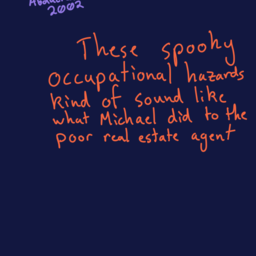 2002
These spooky
occupational hazards
kind of sound like
what Michael did to the
poor real estate agent